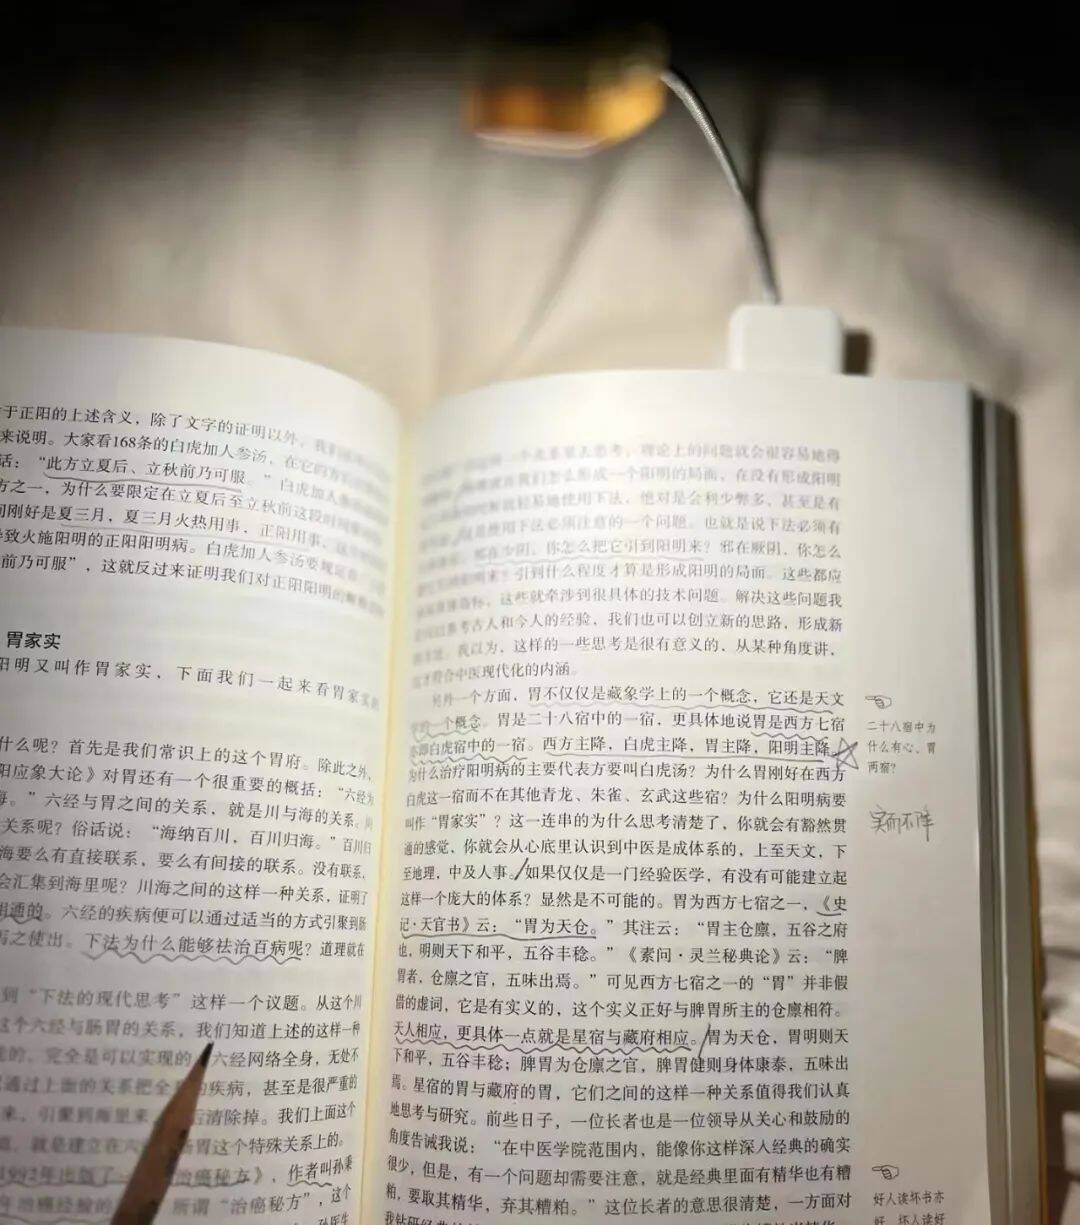 于正阳的上述含义，除了文字的证明以外，我们
来说明。大家看168条的白虎加人参汤，在它的方
话：“此方立夏后、立秋前乃可服。”白虎加人
方之一，为什么要限定在立夏后至立秋前这段时间
间刚好是夏三月，夏三月火热用事，正阳用事，
导致火施阳明的正阳阳明病。白虎加人参汤要规定
前乃可服”，这就反过来证明我们对正阳阳明的
胃家实
阳明又叫作胃家实，下面我们一起来看胃家实的
什么呢？首先是我们常识上的这个胃府。除此之外，
阳应象大论》对胃还有一个很重要的概括：“六经为
海。”六经与胃之间的关系，就是川与海的关系。
关系呢？俗话说：“海纳百川，百川归海。”百川归
海要么有直接联系，要么有间接的联系。没有联系，
会汇集到海里呢？川海之间的这样一种关系，证明了
相通的。六经的疾病便可以通过适当的方式引聚到肠
再之使出。下法为什么能够祛治百病呢？道理就在
到“下法的现代思考”这样一个议题。从这个川
这个六经与肠胃的关系，我们知道上述的这样一种
的，完全是可以实现的。六经网络全身，无处不
通过上面的关系把全身的疾病，甚至是很严重的
来，引聚到海里来，后清除掉。我们上面这个
就是建立在六经 肠胃这个特殊关系上的。
1992年出版了一 治癌秘方》，作者叫孙秉
治癌经验的 所谓“治癌秘方”，这个
孙医生
一个关系去思考，理论上的问题就会很容易地得
我们怎么形成一个阳明的局面，在没有形成阳明
就轻易地使用下法，他对是会利少弊多，甚至是有
是使用下法必须注意的一个问题。也就是说下法必须有
邪在少阴，你怎么把它引到阳明来？邪在厥阴，你怎么
引到什么程度才算是形成阳明的局面。这些都应
指标，这些就牵涉到很具体的技术问题。解决这些问题我
参考古人和今人的经验，我们也可以创立新的思路，形成新
我以为，这样的一些思考是很有意义的，从某种角度讲，
这才符合中医现代化的内涵。
另外一个方面，胃不仅仅是藏象学上的一个概念，它还是天文
学的一个概念。胃是二十八宿中的一宿，更具体地说胃是西方七宿
亦即白虎宿中的一宿。西方主降，白虎主降，胃主降，阳明主降，
为什么治疗阳明病的主要代表方要叫白虎汤？为什么胃刚好在西方
白虎这一宿而不在其他青龙、朱雀、玄武这些宿？为什么阳明病要
叫作“胃家实”？这一连串的为什么思考清楚了，你就会有豁然贯
通的感觉，你就会从心底里认识到中医是成体系的，上至天文，下
至地理，中及人事。如果仅仅是一门经验医学，有没有可能建立起
这样一个庞大的体系？显然是不可能的。胃为西方七宿之一，《史
记·天官书》云：“胃为天仓。”其注云：“胃主仓廪，五谷之府
也，明则天下和平，五谷丰稔。”《素问·灵兰秘典论》云：“脾
胃者，仓廪之官，五味出焉。”可见西方七宿之一的“胃”并非假
借的虚词，它是有实义的，这个实义正好与脾胃所主的仓廪相符。
天人相应，更具体一点就是星宿与藏府相应。胃为天仓，胃明则天
下和平，五谷丰稔；脾胃为仓廪之官，脾胃健则身体康泰，五味出
焉。星宿的胃与藏府的胃，它们之间的这样一种关系值得我们认真
地思考与研究。前些日子，一位长者也是一位领导从关心和鼓励的
角度告诫我说：“在中医学院范围内，能像你这样深入经典的确实
很少，但是，有一个问题却需要注意，就是经典里面有精华也有糟
粕，要取其精华，弃其糟粕。”这位长者的意思很清楚，一方面对
我钻研经典的
二十八宿中为
什么有心、胃
两宿？
实而不降
好人读坏书亦
好，坏人读好